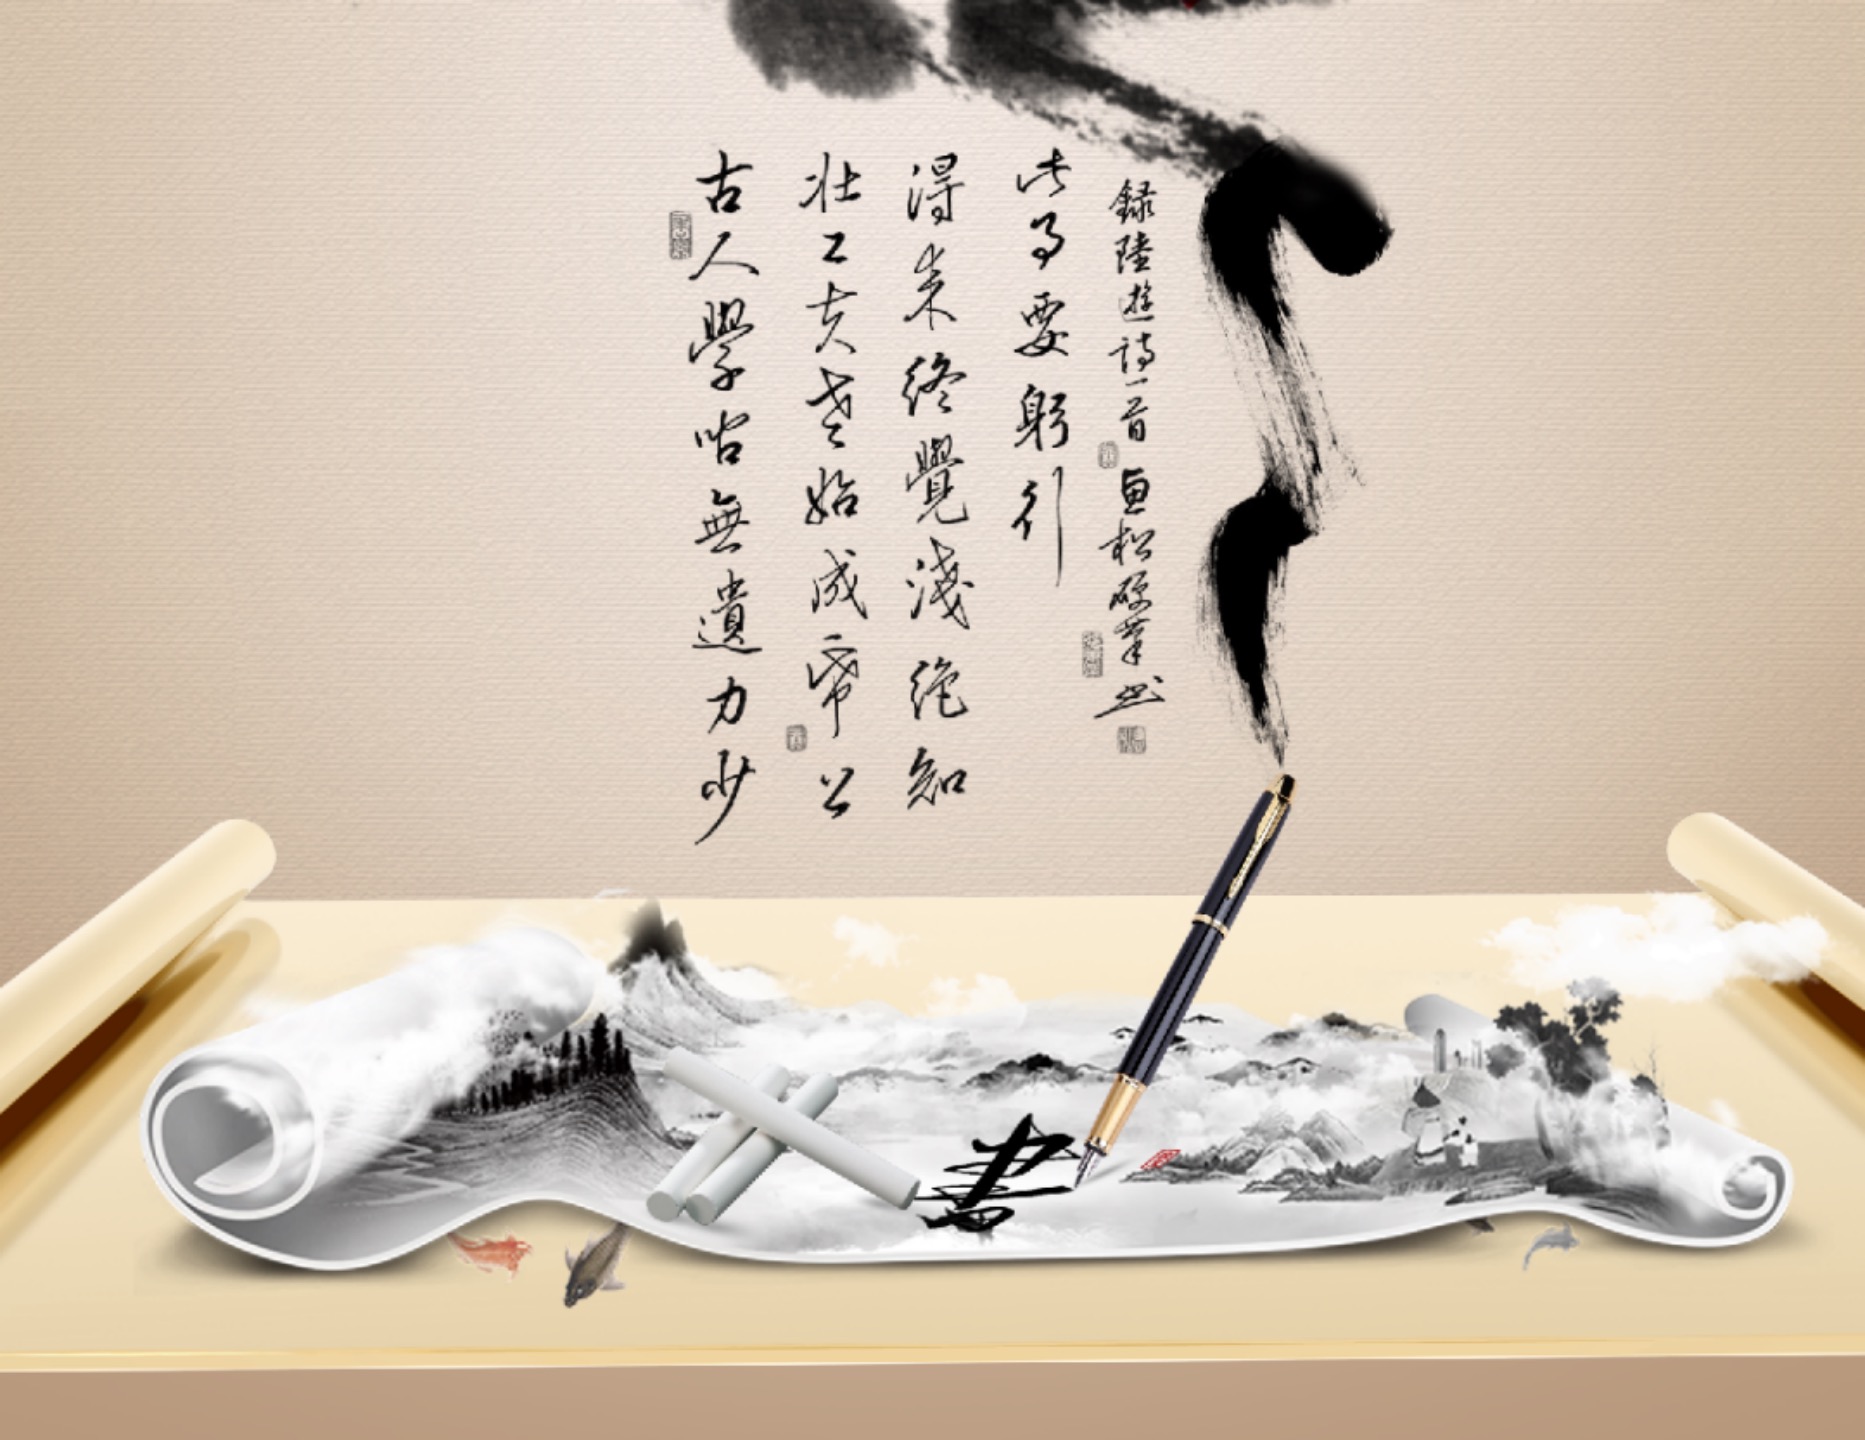 古人學問無遺力少
壯工夫老始成帋上
得來終覺淺絕知
此事要躬行
錄陸遊詩一首 松
書